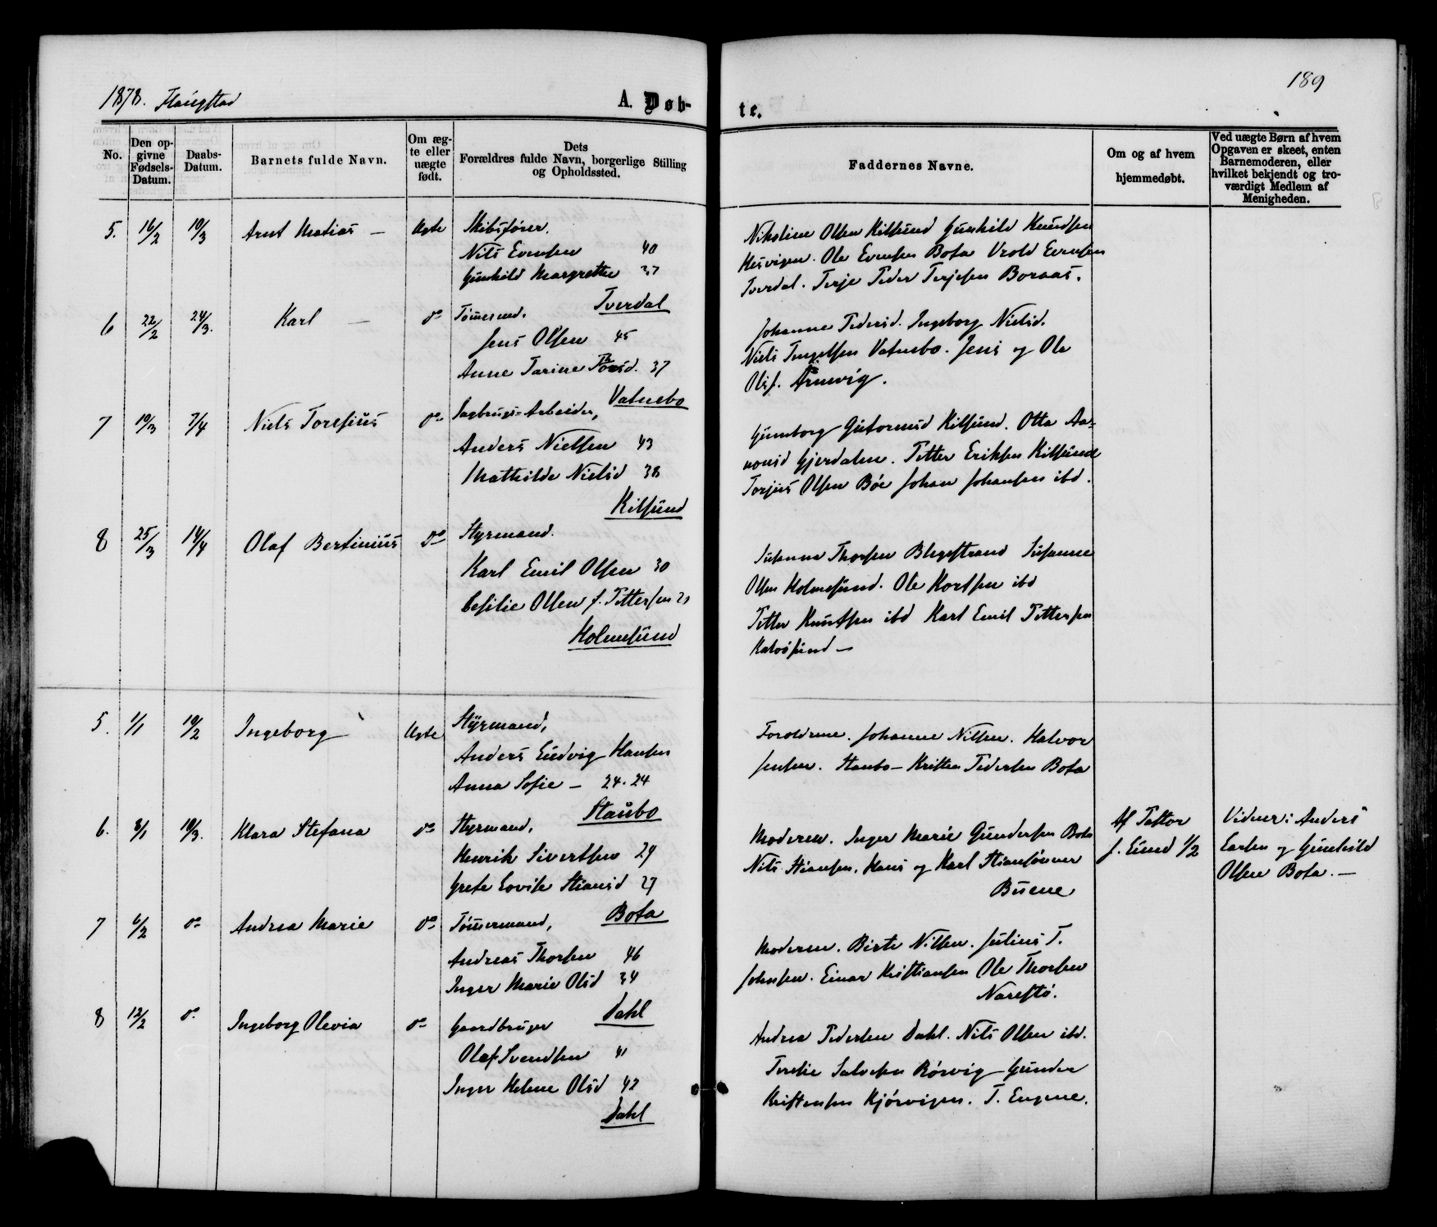 1878. Flangstad
A. Døb-
te.
189
No.
Den op-
givne
Fødsels-
Datum.
Daabs-
Datum.
Barnets fulde Navn.
Om æg-
te eller
uægte
født.
Dets
Forældres fulde Navn, borgerlige Stilling
og Opholdssted.
Faddernes Navne.
Om og af hvem
hjemmedøbt.
Ved uægte Børn af hvem
Opgaven er skeet, enten
Barnemoderen, eller
hvilket bekjendt og tro-
værdigt Medlem af
Menigheden.
5. 16/2 10/3 Arnt Matias — Ægte Skibsfører.
Nils Evensen 40
Gunhild Margrethe 37
Tverdal
Nikoline Olsen Kilsund Gunhild Knudsen
Kesvigen. Ole Evensen Bota Vrold Evensen
Tverdal. Terje Peder Terjesen Boraas.
6 22/2 24/3. Karl — do Tømermd.
Jens Olsen 45
Anne Tarine 37
Vatnebo
Johanne Pedersd. Ingeborg Nielsd.
Niels Tengelsen Vatnebo. Jens og Ole
Olsf. Arnevig.
7 19/3 7/4 Niels Torefius do Sagbrugs-Arbeider,
Anders Nielsen 43
Mathilde Nielsd 38
Kilsund
Gunborg Gutormsd Kilsund. Otta Aa-
nonsd Gjerdalen. Petter Eriksen Kilsund
Torjus Olsen Bøe Johan Johansen ibd.
8 25/3 14/4 Olaf Bertinius do Styrmand.
Karl Emil Olsen 30
Cesilie Olsen f. Pettersen 21
Holmesund
Susanna Thorsen Blegestrand Susanne
Olsen Holmesund. Ole Kortsen ibd
Petter Knutsen ibd Karl Emil Pettersen
Kalvøsund —
5. 1/1 10/2 Ingeborg Ægte Styrmand,
Anders Ludvig Hansen
Anna Sofie — 24. 24
Staubo
Foroldrene. Johanne Nilsen. Halvor
Jensen. Staubo — Kristen Pedersen Bota
6. 8/1 10/3. Klara Stefana do Styrmand,
Henrik Sivertsen 29
Grete Lovise Stiansd 27
Bota
Moderen. Inger Marie Gundersen Bota
Nils Stiansen. Hans og Karl Stiansønner
Buene
Af Pastor
f. Lund 1/2
Vidner: Anders
Larsen og Gunhild
Olsen Bota. —
7 6/2 do Andrea Marie do Tømmermand,
Andreas Thorsen 46
Inger Marie Olsd 34
Dahl
Moderen. Birte Nilsen. Julius T.
Johnsen. Einar Kristiansen Ole Thorsen
Narestø.
8 12/2 do Ingeborg Olevia do Gaardbruger
Olaf Svendsen 41
Inger Helene Olsd 42
Dahl
Andrea Pedersen Dahl. Nils Olsen ibd.
Teresie Salvesen Rørvig — Gunder
Kristensen Kjørvigen. T. Eugene.